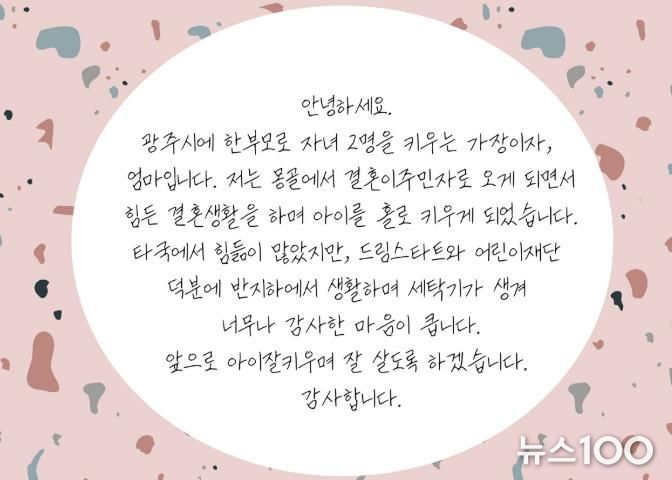 안녕하세요.
광주시에 한부모로 자녀 2명을 키우는 가장이자,
엄마입니다. 저는 몽골에서 결혼이주민자로 오게 되면서
힘든 결혼생활을 하며 아이를 홀로 키우게 되었습니다.
타국에서 힘듦이 많았지만, 드림스타트와 어린이재단
덕분에 반지하에서 생활하며 세탁기가 생겨
너무나 감사한 마음이 큽니다.
앞으로 아이잘키우며 잘 살도록 하겠습니다.
감사합니다.
뉴스100